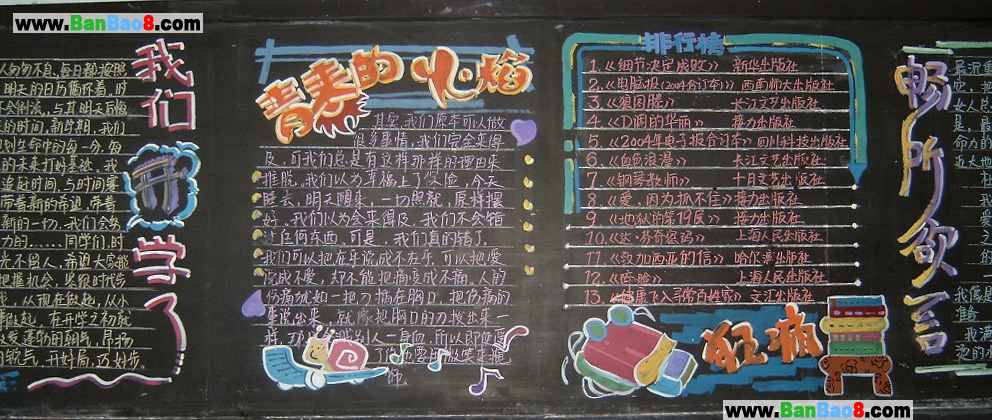 www.BanBao8.com
我们开学了
人匆匆不息,每日都按照
明天的日历循环着,时
们生命中的每一分,每
的未来打好基达。我
追赶时间,与时间赛
带着新的希望,带着
新的一切,我们会努
力的......同学们,时
光不留人,希望大家能
把握机会,
我,从现在做起,从小
事做起,在开学之初就
锐气,开好局,迈好步。
青春的火焰
其实,我们原本可以做
很多事情,我们完全来得
及,可我们总是有这样那样的理由来
推脱。我们以为幸福上了保险,今天
睡去,明天醒来,一切照就,原样摆
好。我们以为会来得及,我们不会错
过任何东西。可是,我们真的错了。
我们可以把在乎说成不在乎,可以把爱
说成不爱,却不能把痛变成不痛。人的
伤痛就如一把刀插在胸口,把伤痛的
事说出来,就像把胸口的刀拔出来一
样,别人一身血,所以即使痛
排行榜
1.《细节决定成败》 新华出版社
2.《电脑报(2004合订本)》西南师大出版社
3.《狼图腾》 长江文艺出版社
4.《D调的华丽》 接力出版社
5.《2004年电子报合订本》四川科技出版社
6.《血色浪漫》 长江文艺出版社
7.《钢琴教师》 十月文艺出版社
8.《爱,因为抓不住》接力出版社
9.《地狱的第19层》 接力出版社
10.《达·芬奇密码》 上海人民出版社
11.《致加西亚的信》 哈尔滨出版社
12.《《 》 上海人民出版社
13.《 飞入寻常百姓家》 文汇出版社
畅所欲言
最沉重
女人总
是,最
命力的
我
爱
之
的
我像是
我满
烫的小
www.BanBao8.com